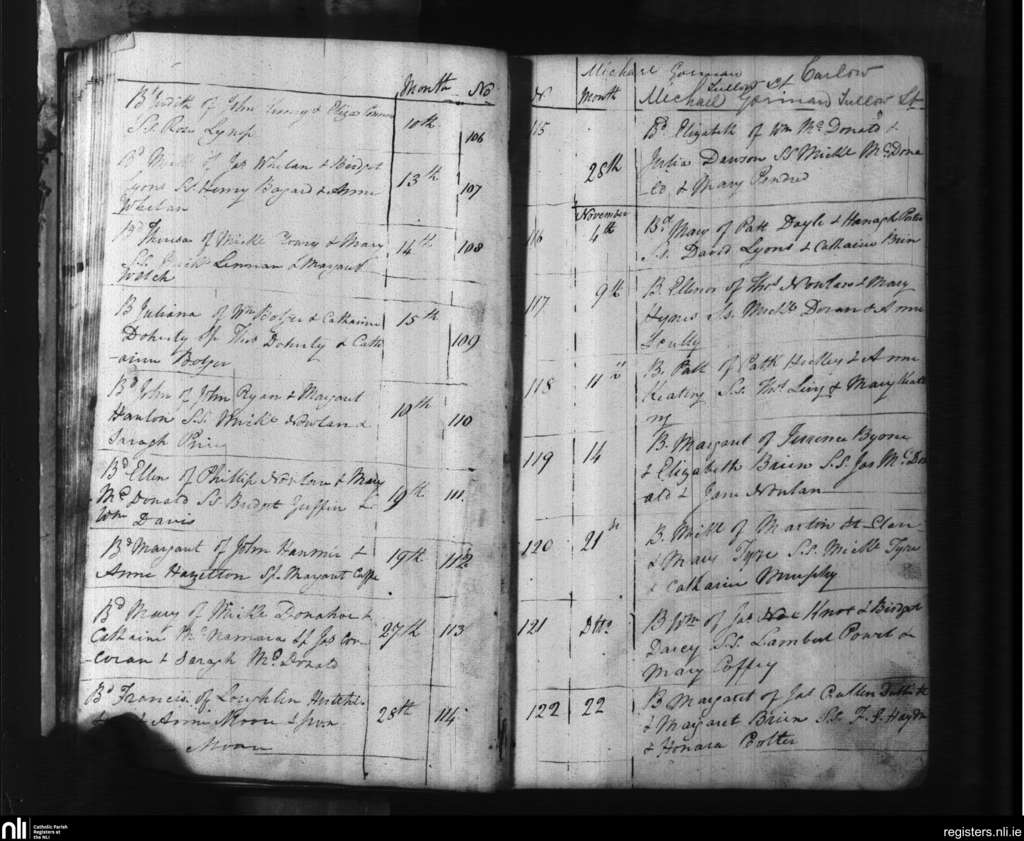 Month No
Bd Judith of John & Eliza
Ss. Rose Lynp 10th 106
Bd Mich of Jas Whelan & Bridget
Lyons Ss. Henry & Anne
Whelan 13th 107
Bd of Mickl & Mary
Ss. Lennan & Margaret
Welch 14th 108
B Juliana of Wm Bolger & Catharine
Doherty Sp Thos Doherty & Cath
-arine Bolger 15th 109
Bd John of John Ryan & Margaret
Hanlon S.S. Mickl Nowlan &
Saragh 19th 110
Bd Ellen of Phillip Nowlan & Mary
McDonald Ss Bridget Griffin &
Wm Davis 19th 111
Bd Margaret of John &
Anne Hazelton Sp. Margaret 19th 112
Bd Mary of Mickl Donahoe &
Catharine McNamara Sp Jas Cor
-coran & Saragh McDonald 27th 113
Bd Francis of Loughlin
Anne Moore Spon 28th 114
Moran
Michael Gorman Carlow
Tullow St
N Month Michael Gorman Tullow St
115 28th Bd Elizabeth of Wm McDonald &
Julia Dawson SS Mickl McDona
ld & Mary
November
116 4th Bd Mary of Patt Doyle & Hanagh
Ss. David Lyons & Catharine Brien
117 9th B Ellenor of Thos Nowlan & Mary
Ss. Mickl Doran & Anne
Scully
118 11th B. Patt of Patk & Anne
Keating S.S. Thos & Mary Keat
ing
119 14 B. Margaret of Terrence Byrne
& Elizabeth Brien S.S. Jas McDon
ald & Jane Nowlan
120 21st B. Mickl of Martin St. Clair
& Mary Tyre S.S. Mickl Tyre
& Catharine Murphy
121 Ditto B Wm of Jas & Bridget
Darcy S.S. Lambert Power &
Mary Coffey
122 22 B Margaret of Jas Cullen
& Margaret Brien Ss. F. J. Haydn
& Honara Potter
nli
Catholic Parish
Registers at
the NLI
registers.nli.ie